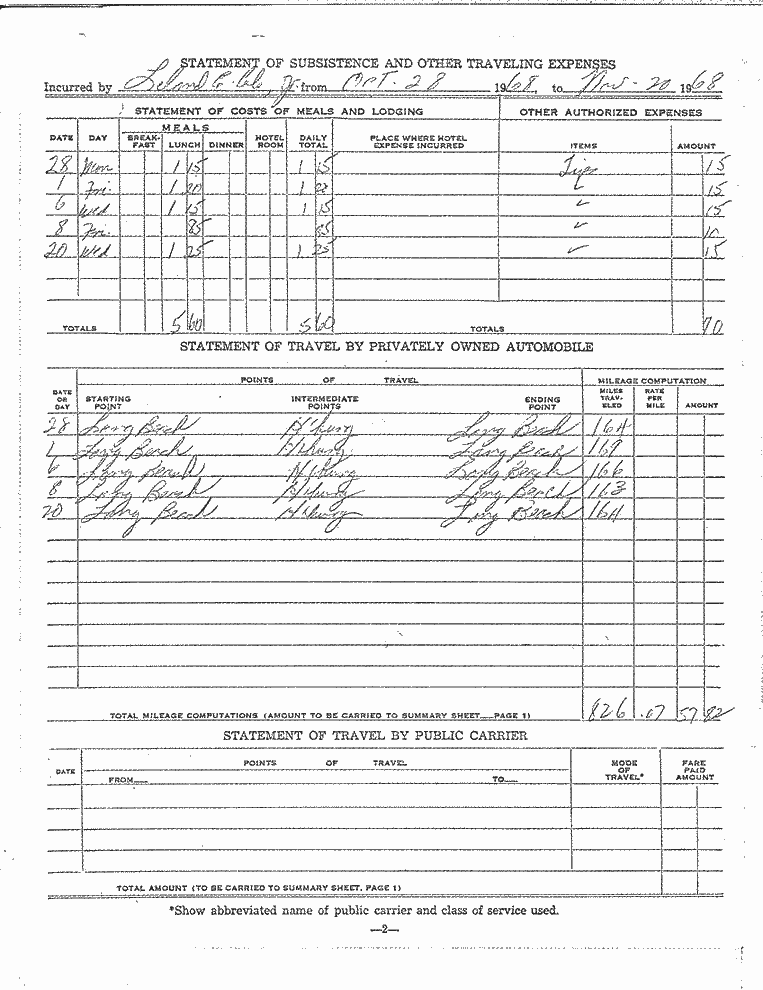 STATEMENT OF SUBSISTENCE AND OTHER TRAVELING EXPENSES
Incurred by Leland E. Jr. from OCT - 28 1968, to Nov - 20 1968
STATEMENT OF COSTS OF MEALS AND LODGING OTHER AUTHORIZED EXPENSES
MEALS
DATE DAY BREAK-FAST LUNCH DINNER HOTEL ROOM DAILY TOTAL PLACE WHERE HOTEL EXPENSE INCURRED ITEMS AMOUNT
28 Mon 1 15 1 15 Tips 15
1 Fri. 1 20 1 20 15
6 Wed 1 15 1 15 ✓ 15
8 Fri. 85 85 ✓ 10
20 Wed 1 25 1 25 ✓ 15
TOTALS 5 60 5 60 TOTALS 70
STATEMENT OF TRAVEL BY PRIVATELY OWNED AUTOMOBILE
POINTS OF TRAVEL MILEAGE COMPUTATION
DATE OR DAY STARTING POINT INTERMEDIATE POINTS ENDING POINT MILES TRAV-ELED RATE PER MILE AMOUNT
28 Long Beach Long Beach 164
1 Long Beach Long Beach 169
6 Long Beach Long Beach 166
8 Long Beach Long Beach 163
20 Long Beach Long Beach 164
TOTAL MILEAGE COMPUTATIONS (AMOUNT TO BE CARRIED TO SUMMARY SHEET—PAGE 1) 826 .07 57 82
STATEMENT OF TRAVEL BY PUBLIC CARRIER
DATE POINTS OF TRAVEL MODE OF TRAVEL* FARE PAID AMOUNT
FROM— TO—
TOTAL AMOUNT (TO BE CARRIED TO SUMMARY SHEET, PAGE 1)
*Show abbreviated name of public carrier and class of service used.
—2—